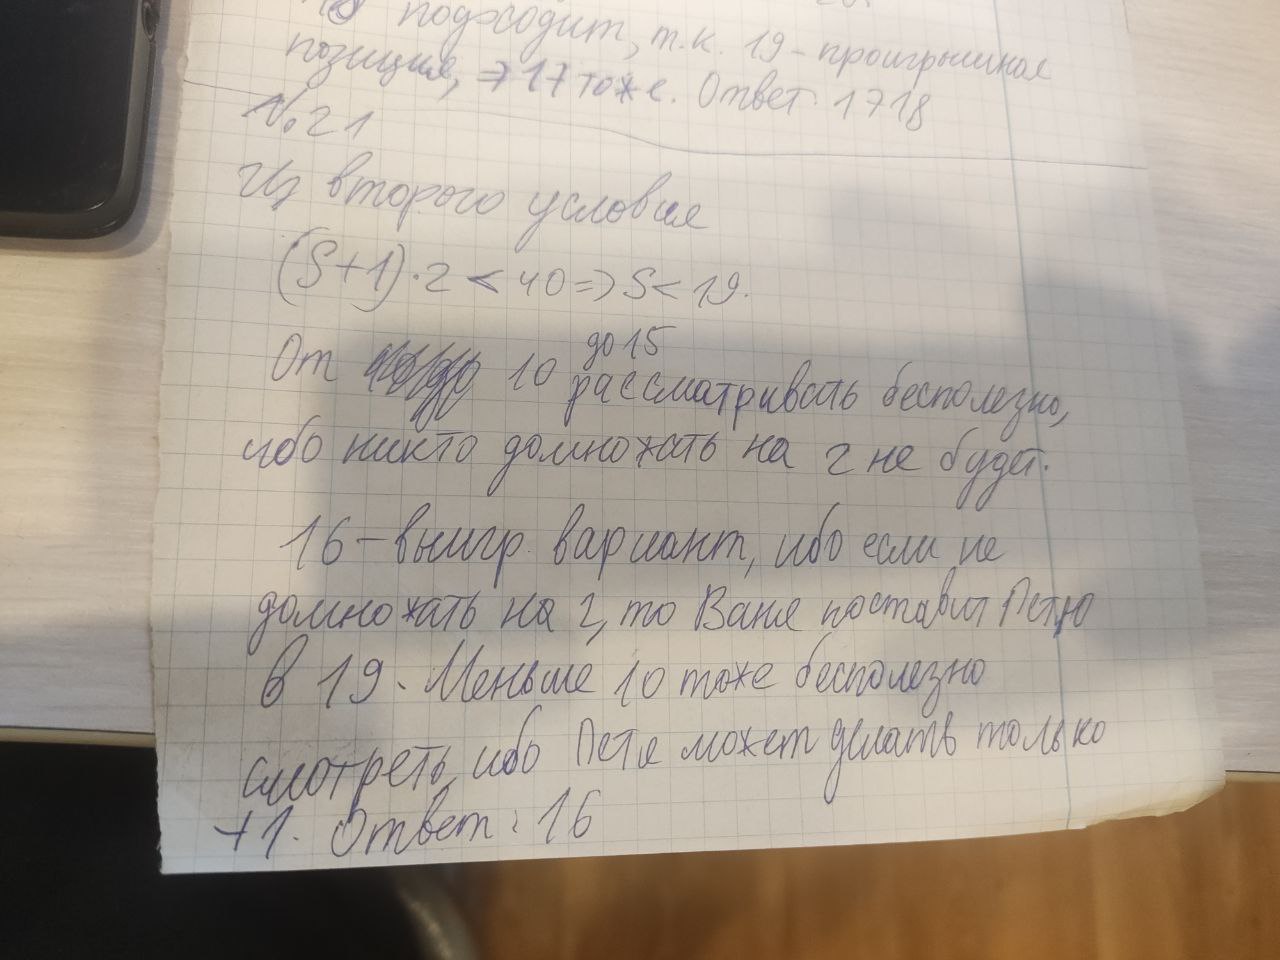 подходит, т.к. 19 - проигрышная
позиция, ⇒ 17 тоже. Ответ: 1718
№21
Из второго условия
(S+1)·2 < 40 ⇒ S < 19.
От 10 до 15 рассматривать бесполезно,
ибо никто домножать на 2 не будет.
16 – выигр. вариант, ибо если не
домножать на 2, то Ваня поставит Петю
в 19. Меньше 10 тоже бесполезно
смотреть, ибо Петя может делать только
+1. Ответ: 16